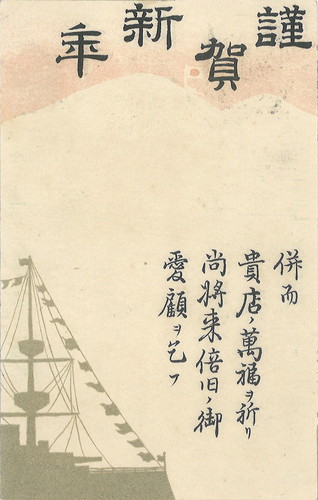 謹賀新年
併而
貴店ノ萬福ヲ祈リ
尚将来倍旧ノ御
愛顧ヲ乞フ